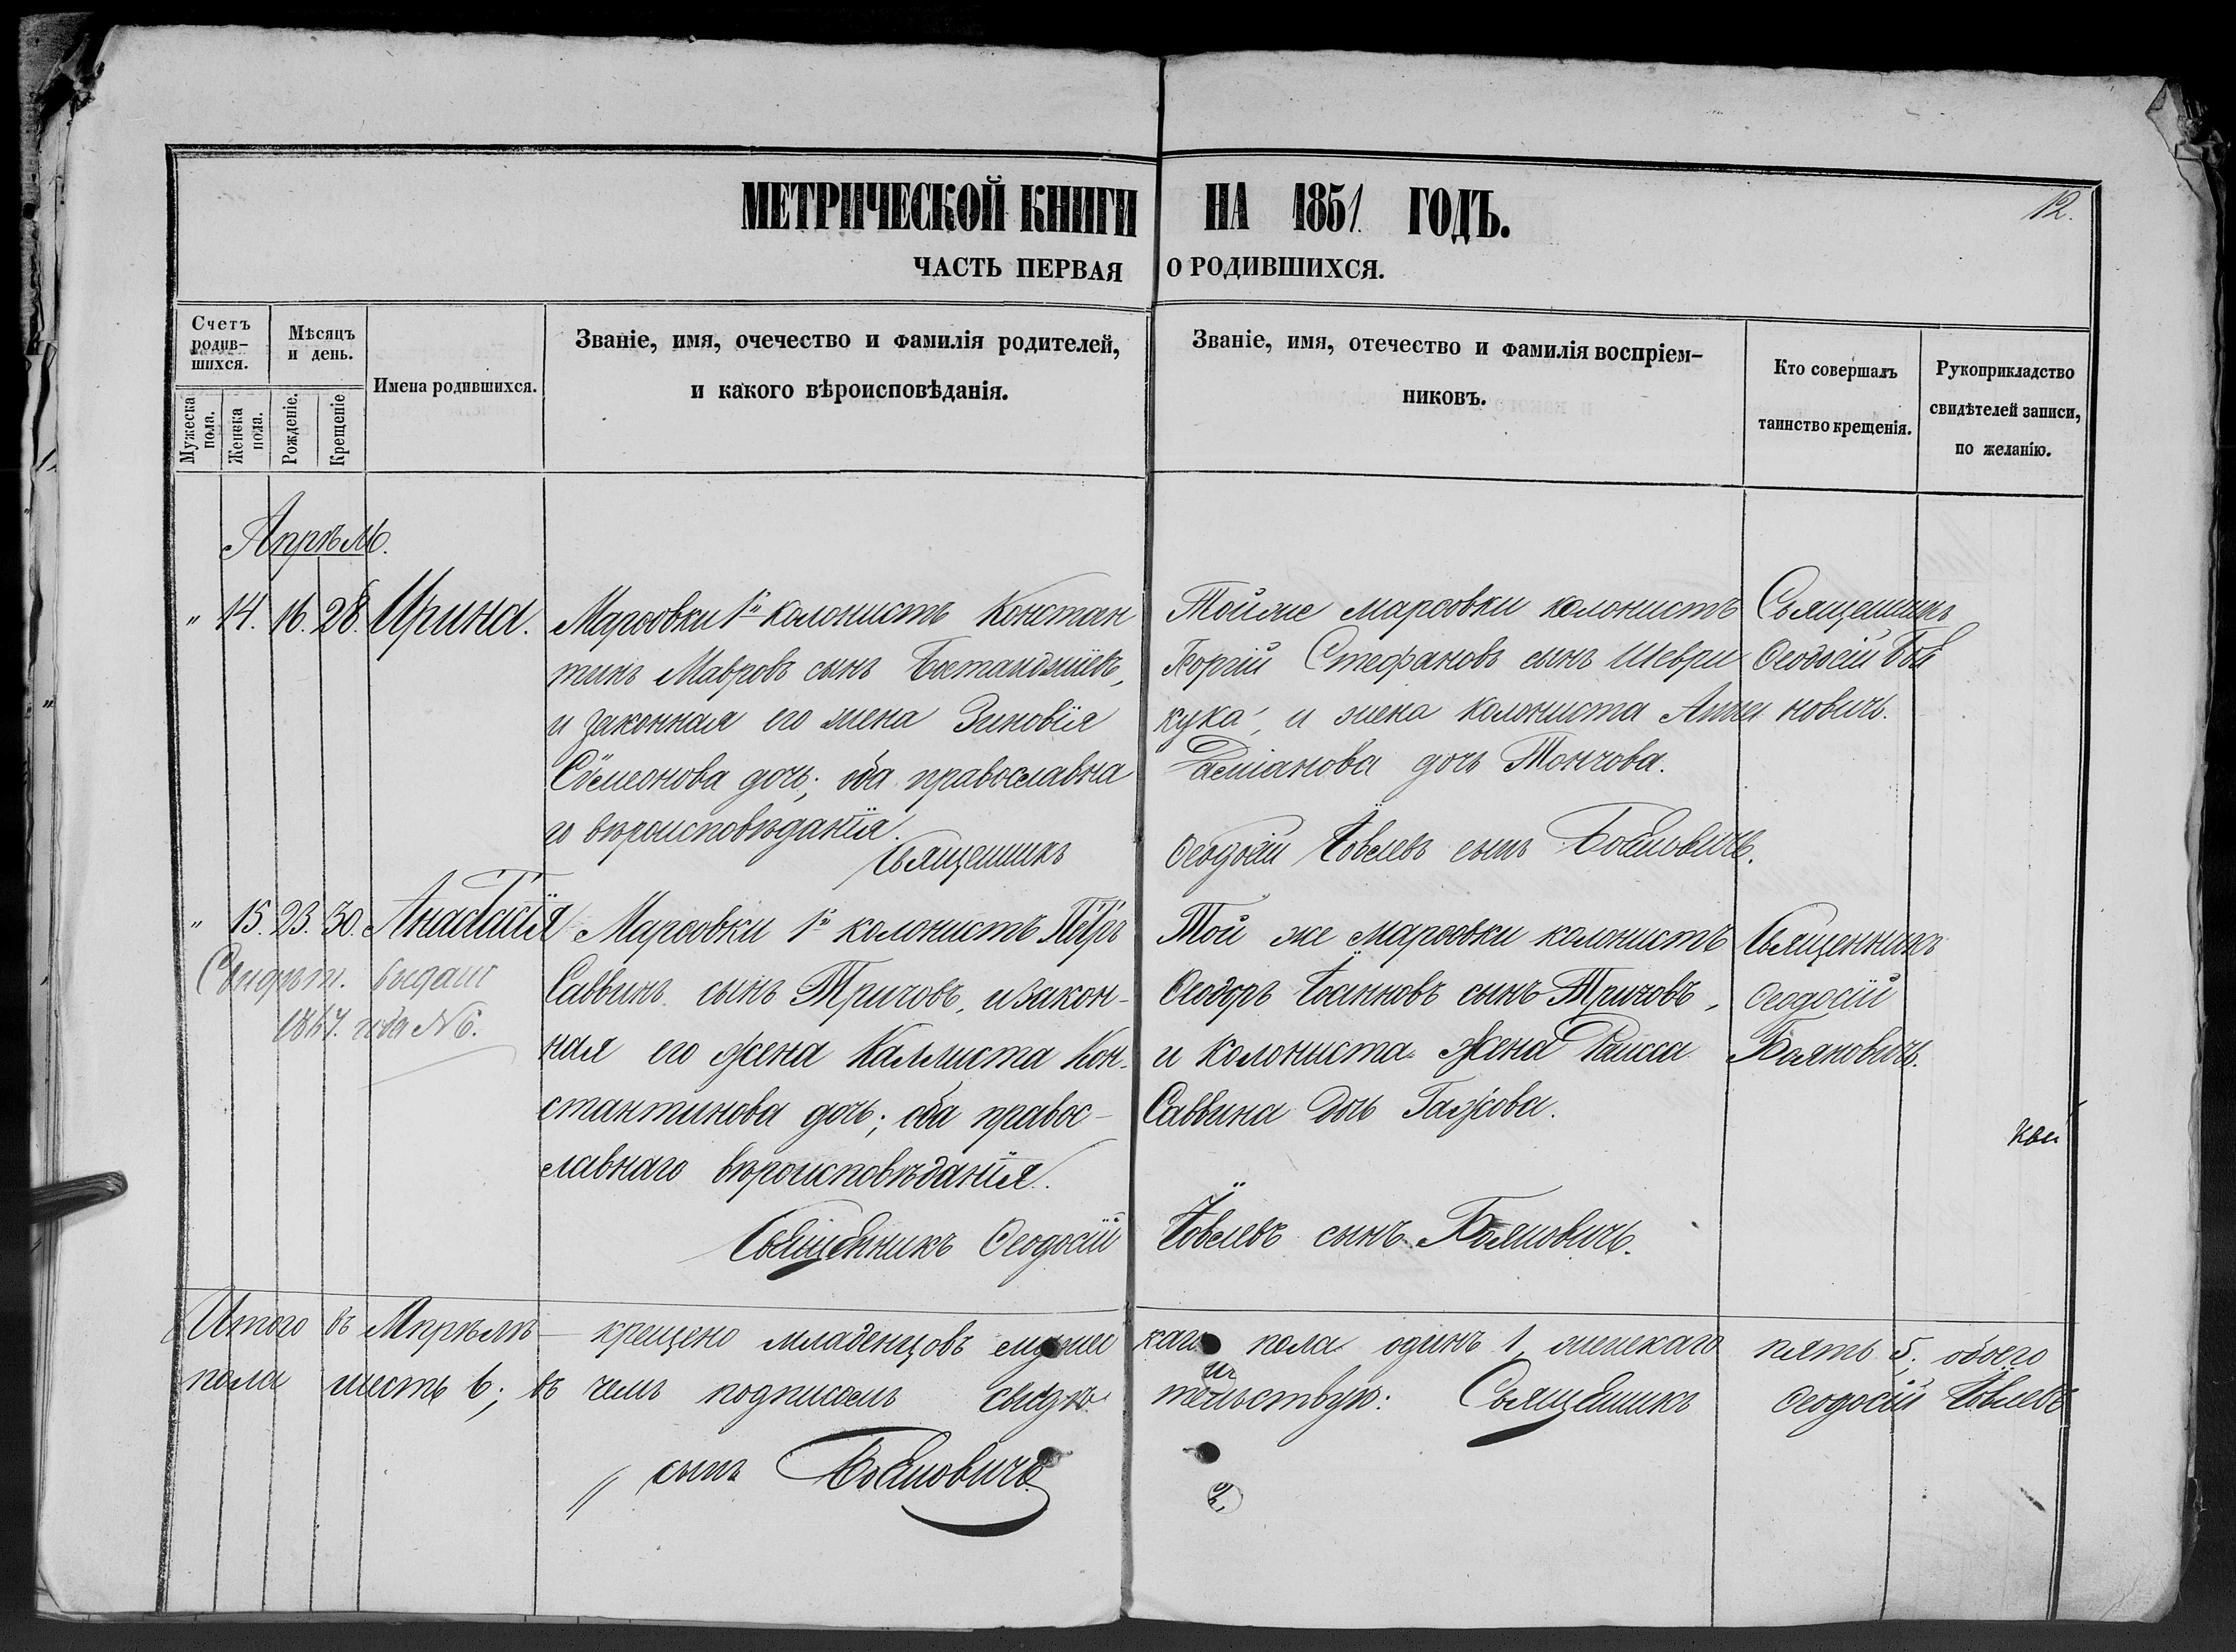 МЕТРИЧЕСКОЙ КНИГИ НА 1851 ГОДЪ.
12.
ЧАСТЬ ПЕРВАЯ О РОДИВШИХСЯ.
Счетъ родив-шихся.
Мужеска пола.
Женска пола.
Мѣсяцъ и день.
Рожденіе.
Крещеніе
Имена родившихся.
Званіе, имя, очечество и фамилія родителей,
и какого вѣроисповѣданія.
Званіе, имя, отечество и фамилія воспріем-
никовъ.
Кто совершалъ
таинство крещенія.
Рукоприкладство
свидѣтелей записи,
по желанію.
Апрѣль.
" 14. 16. 28. Ирина.
Марсовки 1й колонистъ Констан
тинъ Мавровъ сынъ
и законная его жена Зиновія
Сѵмеонова дочь; оба православна
го вѣроисповѣданія.
Священникъ
Тойже марсовки колонистъ
Георгій Стефановъ сынъ Шеври
кука, и жена колониста Анна
дочь Тончова.
Ѳеодосій Іовлевъ сынъ Бояновичъ.
Священникъ
Ѳеодосій Боя
новичъ.
" 15. 23. 30. Анастасія
Свидѣт. выдано
года № 6.
Марсовки 1й колонистъ Петръ
Саввинъ сынъ Тричовъ, и закон-
ная его жена Каллиста Кон-
стантинова дочь; оба правос-
лавнаго вѣроисповѣданія.
Священникъ Ѳеодосій
Той же марсовки колонистъ
Ѳеодоръ Іоанновъ сынъ Тричовъ,
и колониста жена Раисса
Саввина дочь Гажова.
Іовлевъ сынъ Бояновичъ.
Священникъ
Ѳеодосій
Бояновичъ.
Итого въ Апрѣлѣ крещено младенцовъ мужес каго пола одинъ 1, женскаго пять 5; обоего
пола шесть 6; въ чемъ подписомъ свидѣ тельствую: Священникъ Ѳеодосій Іовлевъ
сынъ Бояновичъ
2.